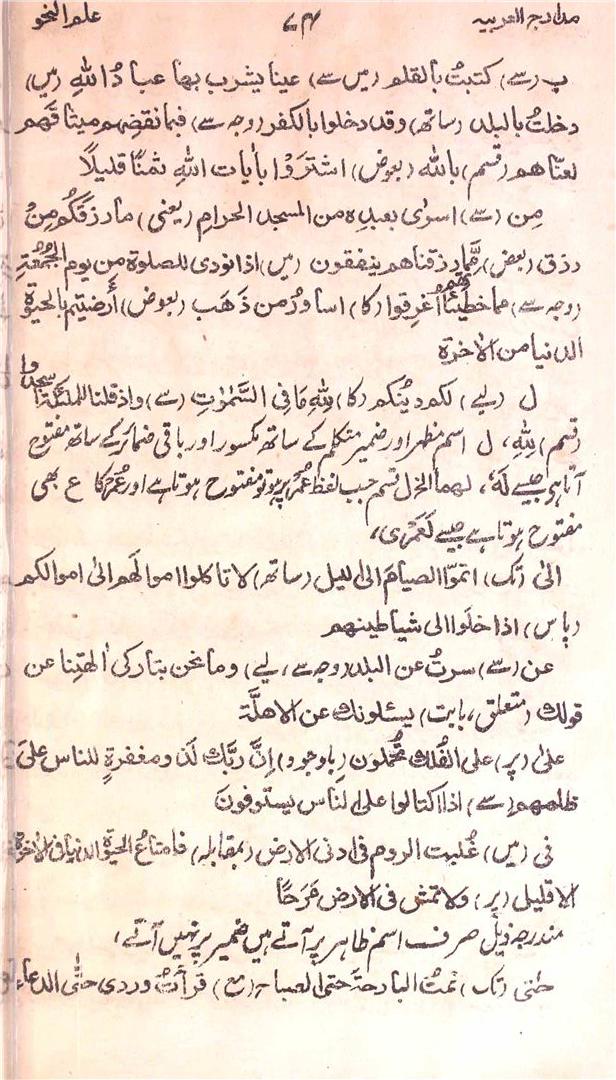 مدارج العربیہ ۷۴ علم النحو
پ (سے) کتبتُ بالقلم (میں سے) عینا یشرب بھا عبادُ اللهِ (میں)
دخلتُ بالبلد (ساتھ) وقد دخلوا بالکفر (وجہ سے) فبما نقضِهِم میثاقَهم
لعنّا هم (قسم) بالله (بعوض) اشتَرَوْا باٰیات اللهِ ثمنًا قلیلًا
مِن (سے) اسرٰی بعبدِہ من المسجد الحرامِ (یعنی) ما رزقَکُم مِنْ
رزق (بعض) مِمَّا رزقناهم ینفقون (میں) اذا نودی للصلوة من یوم الجُمُعَةِ
(وجہ سے) مما خطیٓئٰتهم اُغرِقوا (کا) اساورُ من ذَهَب (بعوض) أرضیتم بالحیوة
الدنیا من الاٰخرة
لِ (لیے) لکم دینُکم (کا) لِلّٰہِ مَا فِی السَّمٰوٰتِ (سے) واذ قلنا للملٰٓئکة اسجدوا
(قسم) لِلّٰہِ، ل اسم مظہر اور ضمیر متکلم کے ساتھ مکسور اور باقی ضمائر کے ساتھ مفتوح
آتا ہی جیسے لَهٗ، لهما الخ ل قسم جب لفظ عُمُر پر ہو تو مفتوح ہوتا ہے اور عُمُر کا ع بھی
مفتوح ہوتا ہے جیسے لَعَمْرِی،
الیٰ (تک) اتموّا الصیامَ الی اللیل (ساتھ) لا تاکلوا اموالَهم الیٰ اموالکم
(پاس) اذا خلَوا الی شیاطینهم
عن (سے) سرتُ عن البلد (وجہ سے، لیے) وما نحن بتارکی اٰلهتِنا عن
قولك (متعلق، بابت) یسئلونك عن الاهلَّة
علیٰ (پر) علی الفُلك تُحْمَلون (باوجود) اِنَّ رَبَّك لَذو مغفرةٍ للناس علیٰ
ظلمهم (سے) اذا اکتالوا علی الناس یستوفونَ
فی (میں) غُلبت الروم فی ادنی الارض (بمقابلہ) فما متاعُ الحیوة الدنیا فی الاٰخرة
الا قلیل (پر) ولا تمش فی الارض مَرَحًا
مندرجہ ذیل صرف اسم ظاہر پر آتے ہیں ضمیر پر نہیں آتے،
حتی (تک) نمتُ البارحةَ حتی الصباح (مع) قرأتُ وردی حتّی الدعاء